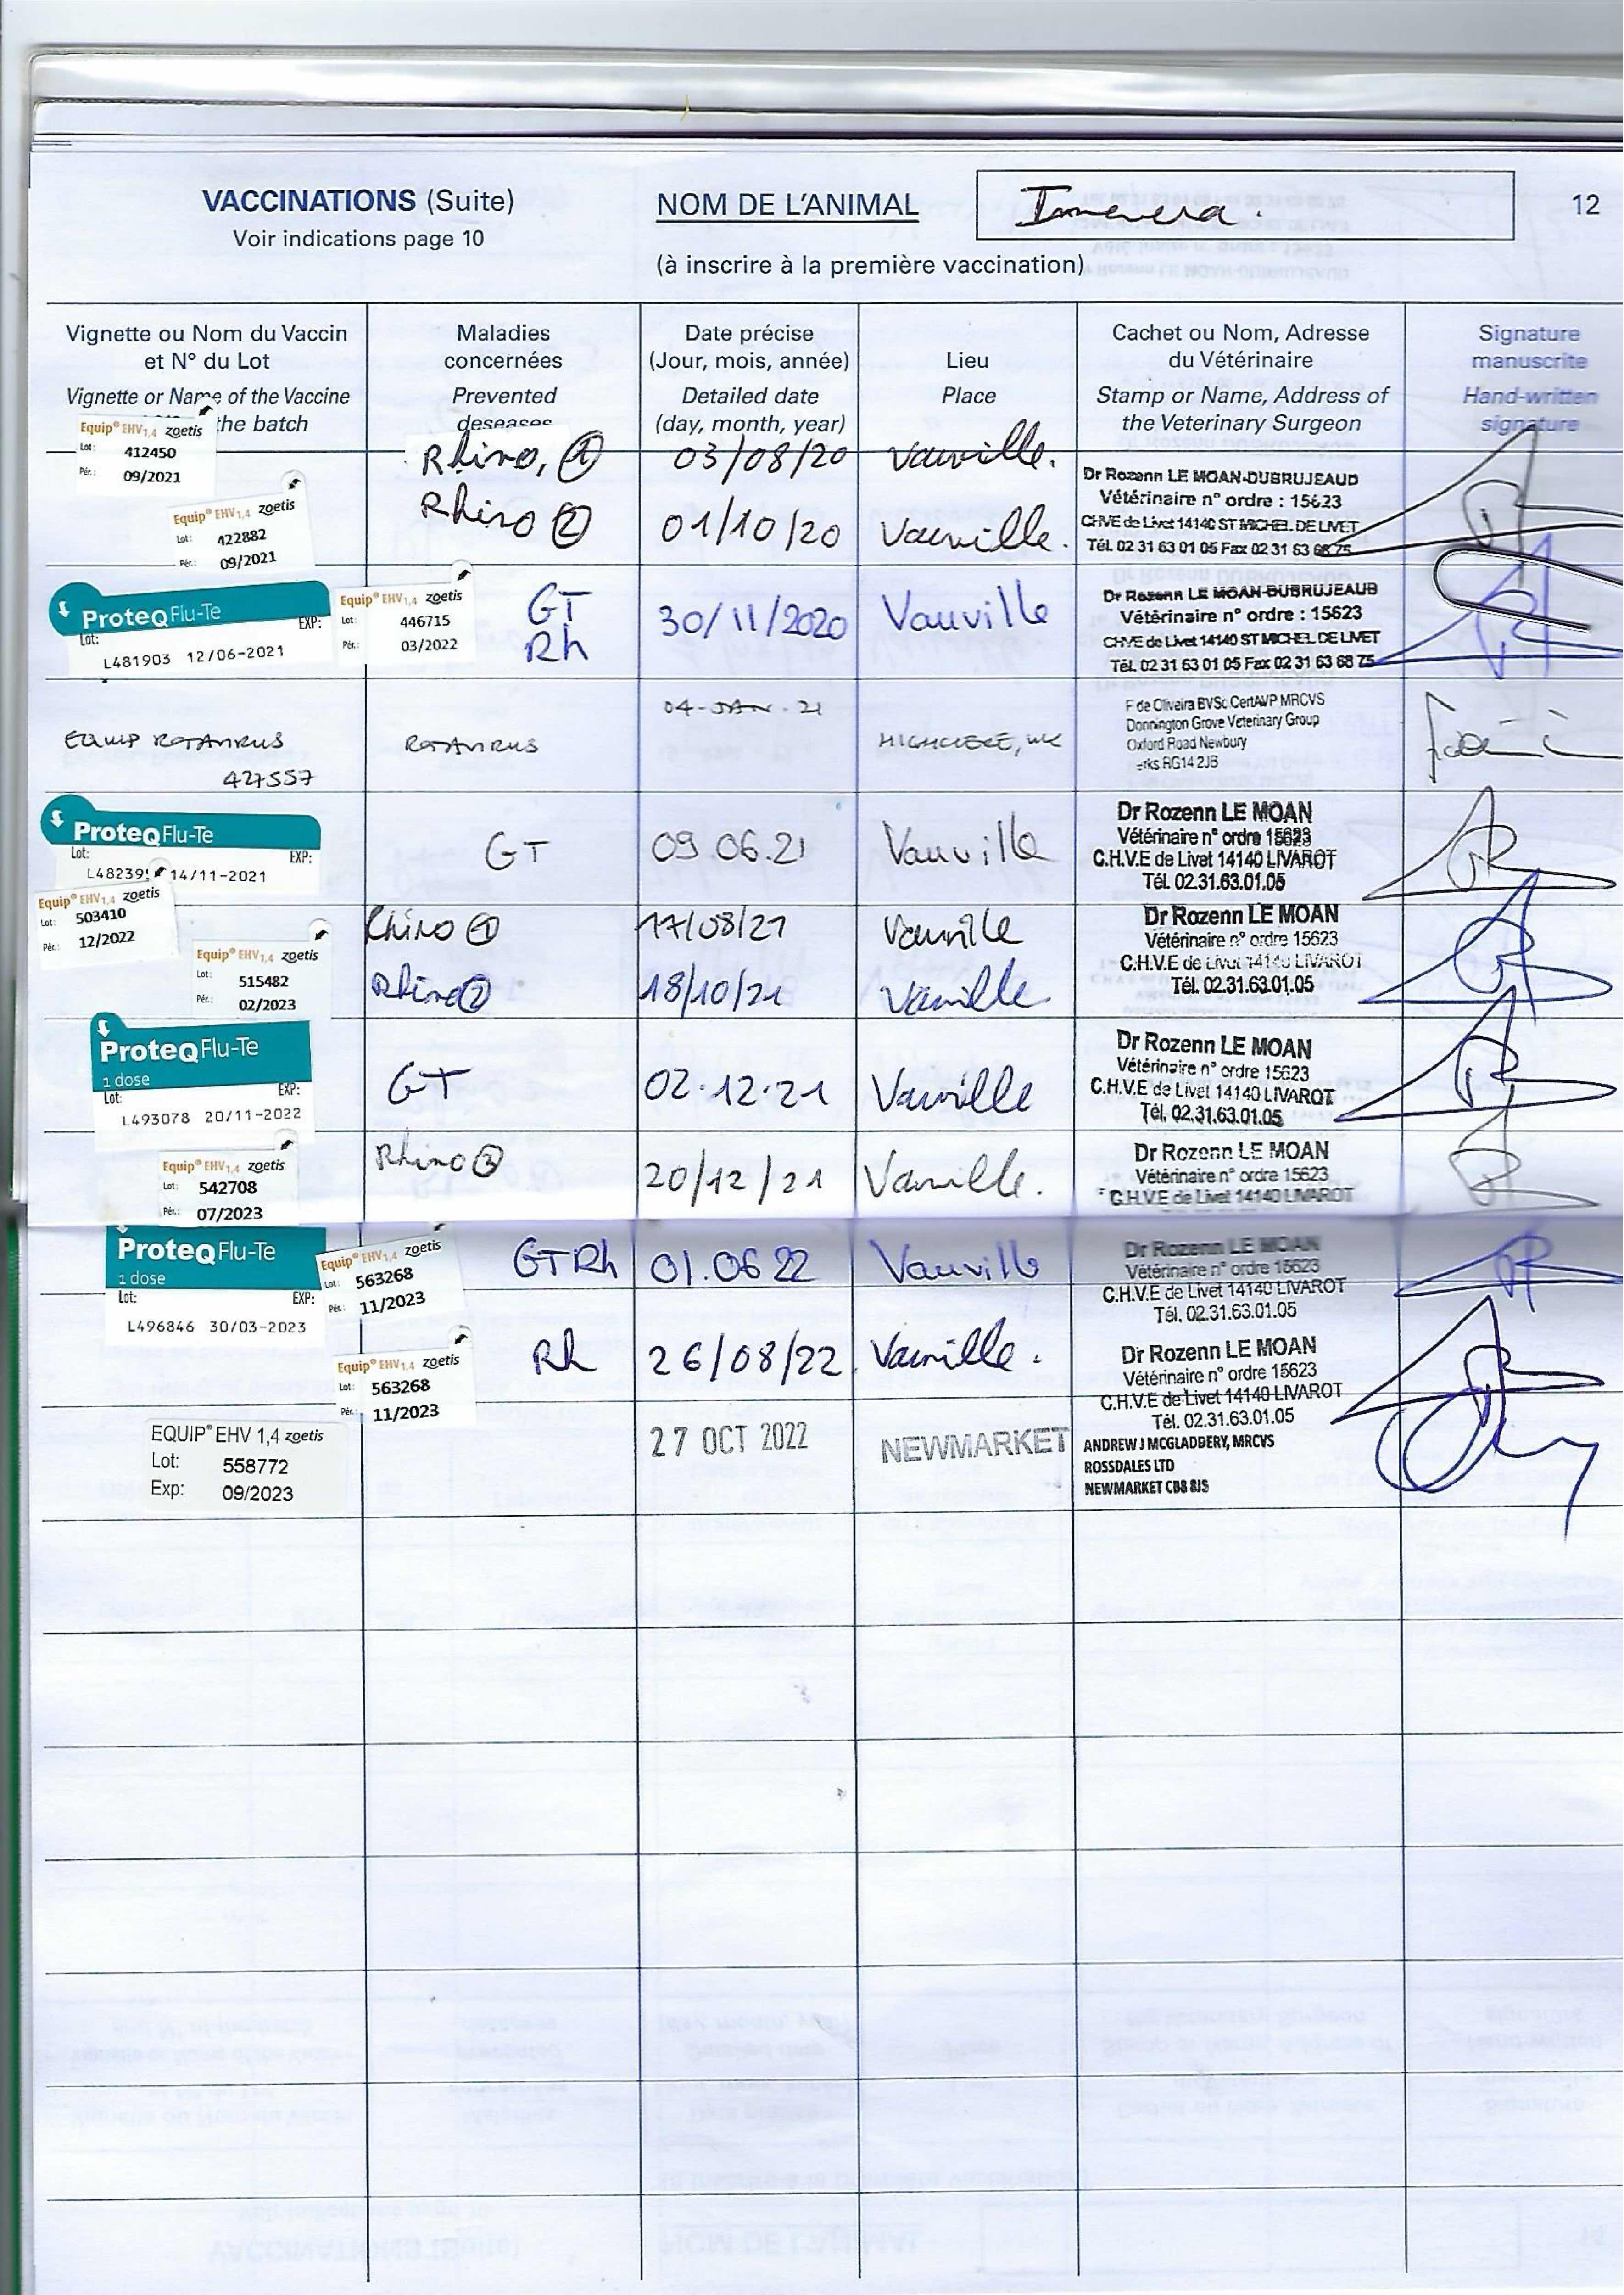 VACCINATIONS (Suite)
Voir indications page 10
NOM DE L'ANIMAL
12
(à inscrire à la première vaccination)
Vignette ou Nom du Vaccin
et N° du Lot
Vignette or Name of the Vaccine
the batch
Maladies
concernées
Prevented
diseases
Date précise
(Jour, mois, année)
Detailed date
(day, month, year)
Lieu
Place
Cachet ou Nom, Adresse
du Vétérinaire
Stamp or Name, Address of
the Veterinary Surgeon
Signature
manuscrite
Hand-written
signature
Equip® EHV1,4 zoetis
Lot: 412450
Pér.: 09/2021
Rhino, ① 03/08/20 Vauville.
Equip® EHV1,4 zoetis
Lot: 422882
Pér.: 09/2021
Rhino ② 01/10/20 Vauville.
Dr Rozenn LE MOAN-DUBRUJEAUD
Vétérinaire n° ordre : 15623
CHVE de Livet 14140 ST MICHEL DE LIVET
Tél. 02 31 63 01 05 Fax 02 31 63 68 75
ProteqFlu-Te
Lot: EXP:
L481903 12/06-2021
Equip® EHV1,4 zoetis
Lot: 446715
Pér.: 03/2022
GT
Rh
30/11/2020 Vauville
Dr Rozenn LE MOAN-DUBRUJEAUD
Vétérinaire n° ordre : 15623
CHVE de Livet 14140 ST MICHEL DE LIVET
Tél. 02 31 63 01 05 Fax 02 31 63 68 75
EQUIP ROTAVIRUS
427557
ROTAVIRUS
04-JAN-21
HIGHCLERE, UK
F de Oliveira BVSc CertAVP MRCVS
Donnington Grove Veterinary Group
Oxford Road Newbury
erks RG14 2JB
ProteqFlu-Te
Lot: EXP:
14/11-2021
GT 09.06.21 Vauville
Dr Rozenn LE MOAN
Vétérinaire n° ordre 15623
C.H.V.E de Livet 14140 LIVAROT
Tél. 02.31.63.01.05
Equip® EHV1,4 zoetis
Lot: 503410
Pér.: 12/2022
Rhino ① 17/08/21 Vauville
Equip® EHV1,4 zoetis
Lot: 515482
Pér.: 02/2023
Rhino ② 18/10/21 Vauville
Dr Rozenn LE MOAN
Vétérinaire n° ordre 15623
C.H.V.E de Livet 14140 LIVAROT
Tél. 02.31.63.01.05
ProteqFlu-Te
1 dose
Lot: EXP:
L493078 20/11-2022
GT 02.12.21 Vauville
Dr Rozenn LE MOAN
Vétérinaire n° ordre 15623
C.H.V.E de Livet 14140 LIVAROT
Tél. 02.31.63.01.05
Equip® EHV1,4 zoetis
Lot: 542708
Pér.: 07/2023
Rhino ③ 20/12/21 Vauville.
Dr Rozenn LE MOAN
Vétérinaire n° ordre 15623
C.H.V.E de Livet 14140 LIVAROT
ProteqFlu-Te
1 dose
Lot: EXP:
L496846 30/03-2023
Equip® EHV1,4 zoetis
Lot: 563268
Pér.: 11/2023
GTRh 01.06 22 Vauville
Dr Rozenn LE MOAN
Vétérinaire n° ordre 15623
C.H.V.E de Livet 14140 LIVAROT
Tél. 02.31.63.01.05
Equip® EHV1,4 zoetis
Lot: 563268
Pér.: 11/2023
Rh 26/08/22 Vauville.
Dr Rozenn LE MOAN
Vétérinaire n° ordre 15623
C.H.V.E de Livet 14140 LIVAROT
Tél. 02.31.63.01.05
EQUIP® EHV 1,4 zoetis
Lot: 558772
Exp: 09/2023
27 OCT 2022 NEWMARKET
ANDREW J MCGLADDERY, MRCVS
ROSSDALES LTD
NEWMARKET CB8 8JS